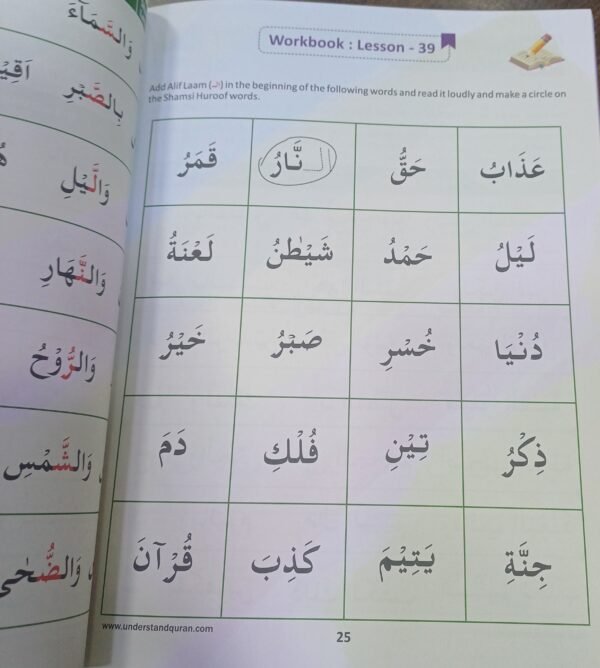 وَالسَّمَآءَ
بِالصَّبْرِ
وَالَّيْلِ
وَالنَّهَارِ
وَالرُّوْحُ
وَالشَّمْسِ
وَالضُّحٰى
Workbook : Lesson - 39
Add Alif Laam (الـ) in the beginning of the following words and read it loudly and make a circle on
the Shamsi Huroof words.
عَذَابُ حَقُّ الـنَّارُ قَمَرُ
لَيْلُ حَمْدُ شَيْطٰنُ لَعْنَةُ
دُنْيَا خُسْرِ صَبْرُ خَيْرُ
ذِكْرُ تِيْنِ فُلْكِ دَمَ
جِنَّةِ يَتِيْمَ كَذِبَ قُرْآنَ
www.understandquran.com
25